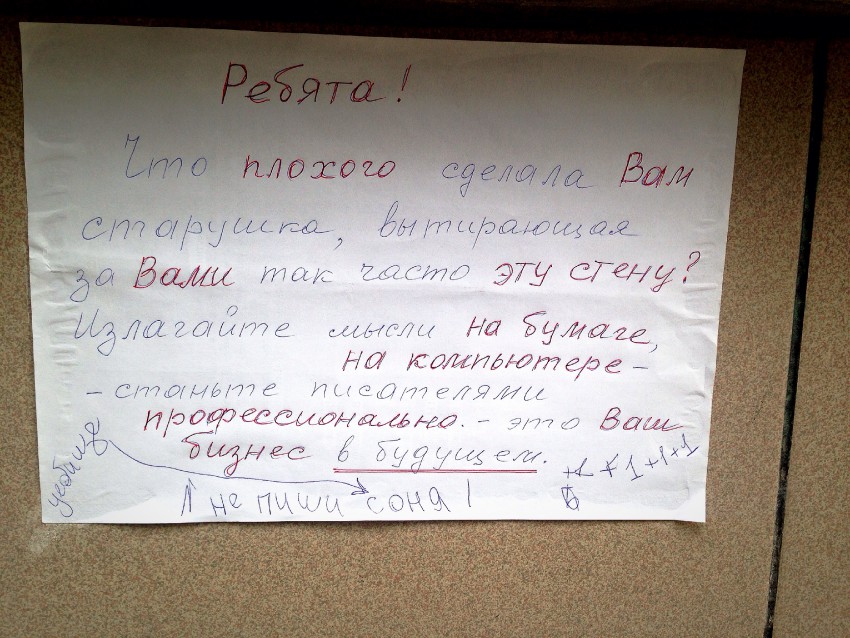 Ребята!
Что плохого сделала Вам
старушка, вытирающая
за Вами так часто эту стену?
Излагайте мысли на бумаге,
на компьютере -
- станьте писателями
профессионально. - это Ваш
бизнес в будущем.
уебище
+1 +1 +1+1
не пиши соня!